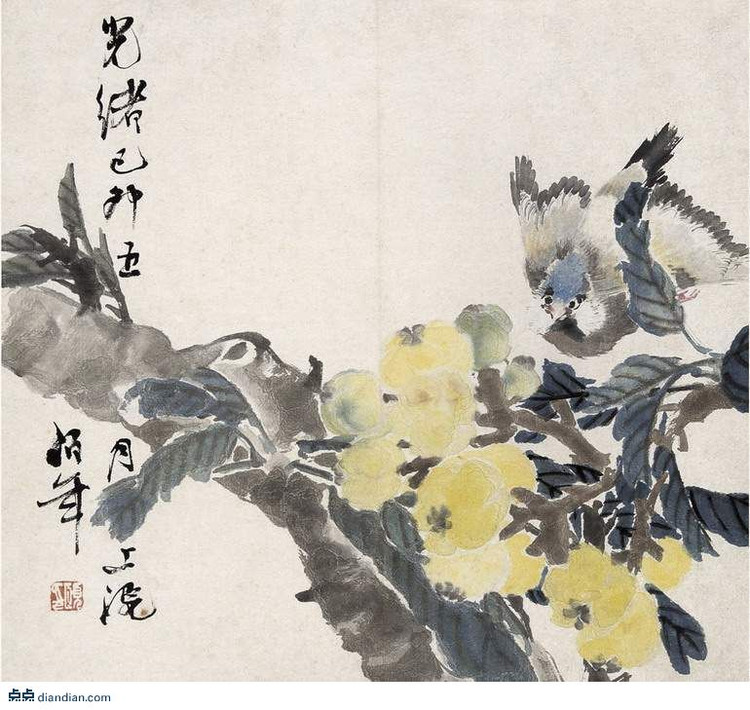 光緒己卯五
月上浣
伯年
點點 diandian.com